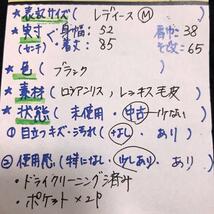 ★表記サイズ(レディース Ⓜ)
★実寸・身幅:52 肩巾:38
(センチ)・着丈:85 そで:65
★色(ブラック)
★素材(ロシアンリス,レッキス毛皮)
★状態(未使用・中古
①目立つキズ・汚れ(なし・あり)
②使用感(特になし・少しあり・あり)
・ドライクリーニング済み
・ポケット×2P